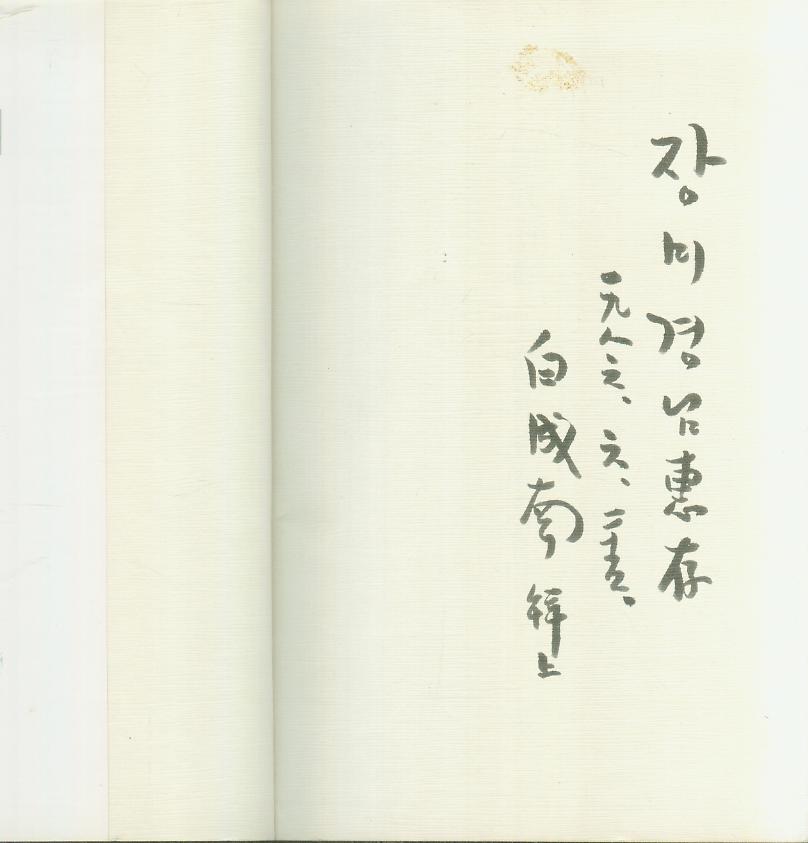 장미경님 惠存
一九八六、六、二十五、
白成南 拜上